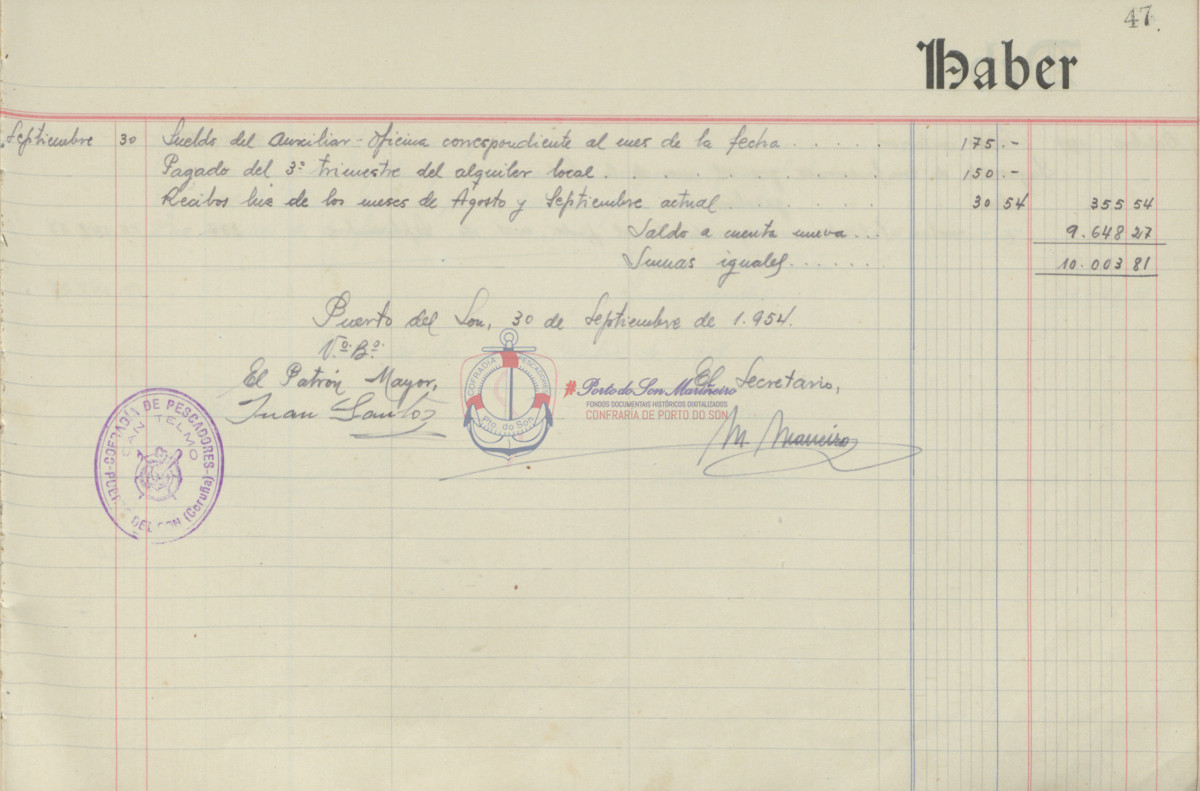 47.
Haber
Septiembre 30 Sueldo del Auxiliar-Oficina correspondiente al mes de la fecha . . . . . . 175.-
Pagado del 3º trimestre del alquiler local . . . . . . . . . . . 150.-
Recibos luz de los meses de Agosto y Septiembre actual . . . . . . 30 54 355 54
Saldo a cuenta nueva . . . 9.648 27
Sumas iguales . . . . . . . 10.003 81
Puerto del Son, 30 de Septiembre de 1.954.
V.º B.º
El Patrón Mayor, El Secretario,
Juan Santos M. Maneiro
COFRADÍA DE PESCADORES
SAN TELMO
DEL SON (Coruña)
COFRADIA PESCADORES
Pto. do Son
# Porto do Son Mariñeiro
FONDOS DOCUMENTAIS HISTÓRICOS DIXITALIZADOS
CONFRARÍA DE PORTO DO SON